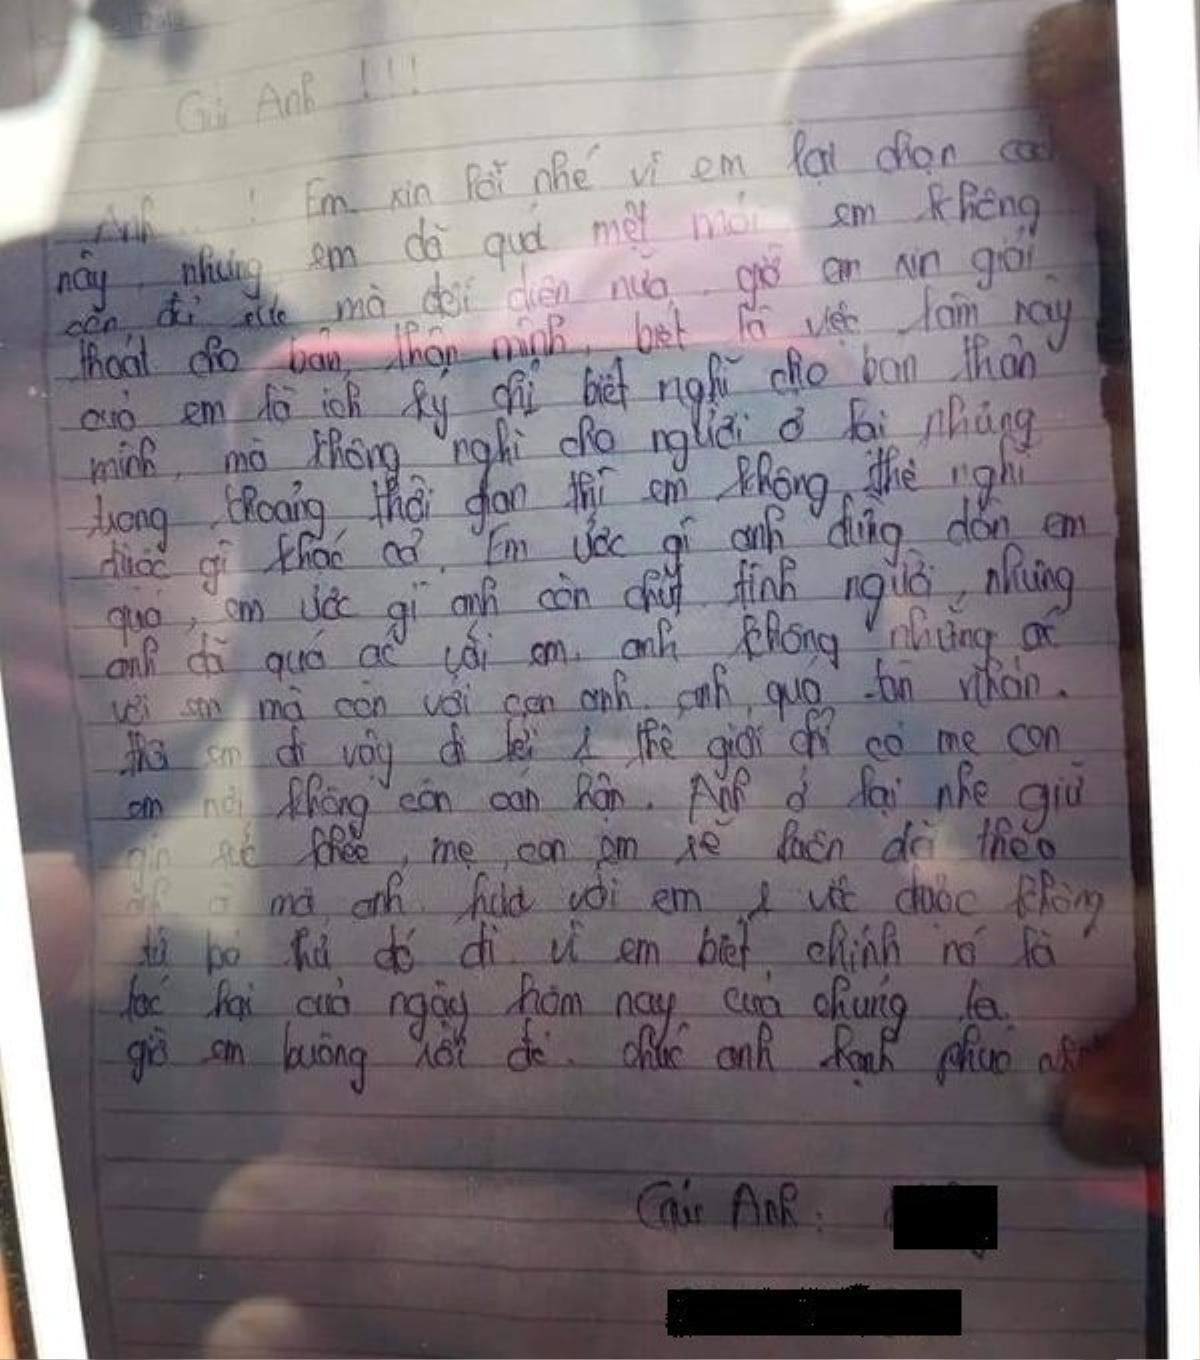 Gửi Anh !!!
Anh ! Em xin lỗi nhé vì em lại chọn
này, nhưng em đã quá mệt mỏi em không
còn đủ sức mà đối diện nữa, giờ em xin giải
thoát cho bản thân mình, biết là việc làm này
của em là ích kỷ chỉ biết nghĩ cho bản thân
mình, mà không nghĩ cho người ở lại nhưng
trong khoảng thời gian thì em không thể nghĩ
được gì khác cả. Em ước gì anh đừng dồn em
quá, em ước gì anh còn chút tình người, nhưng
anh đã quá ác với em. anh không những ác
với em mà còn với con anh. anh quá tàn nhẫn.
thôi em đi vậy đi tới 1 thế giới chỉ có mẹ con
em nơi không còn oán hận. Anh ở lại nhé giữ
gìn sức khỏe, mẹ con em sẽ luôn dõi theo
mà anh hứa với em 1 việc được không
từ bỏ thứ đó đi vì em biết chính nó là
tác hại của ngày hôm nay của chúng ta.
giờ em buông rồi đó. chúc anh hạnh phúc
Gửi Anh: